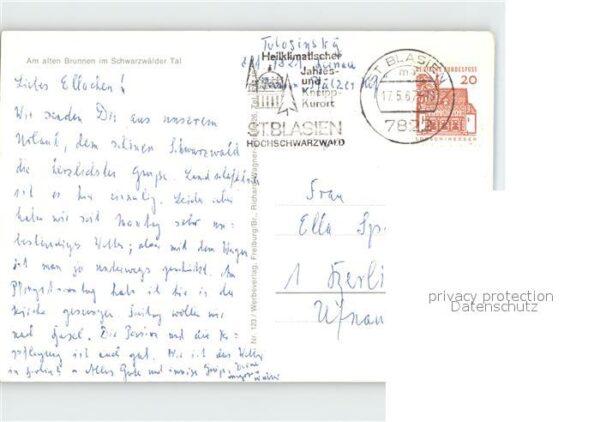 Am alten Brunnen im Schwarzwälder Tal
Liebes Ellachen!
Wir senden Dir aus unserem
Urlaub, dem schönen Schwarzwald
die herzlichsten Grüße. Landschaftlich
ist es hier einmalig. Leider aber
haben wir seit Montag sehr un-
beständiges Wetter; aber mit dem Wagen
ist man ja unterwegs geschützt. Am
Pfingstsonntag habe ich hier in der
Kirche gesungen. Freitag wollen wir
nach Basel. Die Pension und die Ver-
pflegung ist auch gut. Wie ist das Wetter
in Alles Gute und innige Grüße, Deine
Nr. 123 / Werbeverlag, Freiburg/Br., Richard Wagner
Heilklimatischer
Jahres-
und
Kneipp-
Kurort
ST. BLASIEN
HOCHSCHWARZWALD
ST BLASIEN
17.5.67
7822
DEUTSCHE BUNDESPOST
20
LORSCH/HESSEN
Frau
Ella
1 Berli
Ufnau
privacy protection
Datenschutz